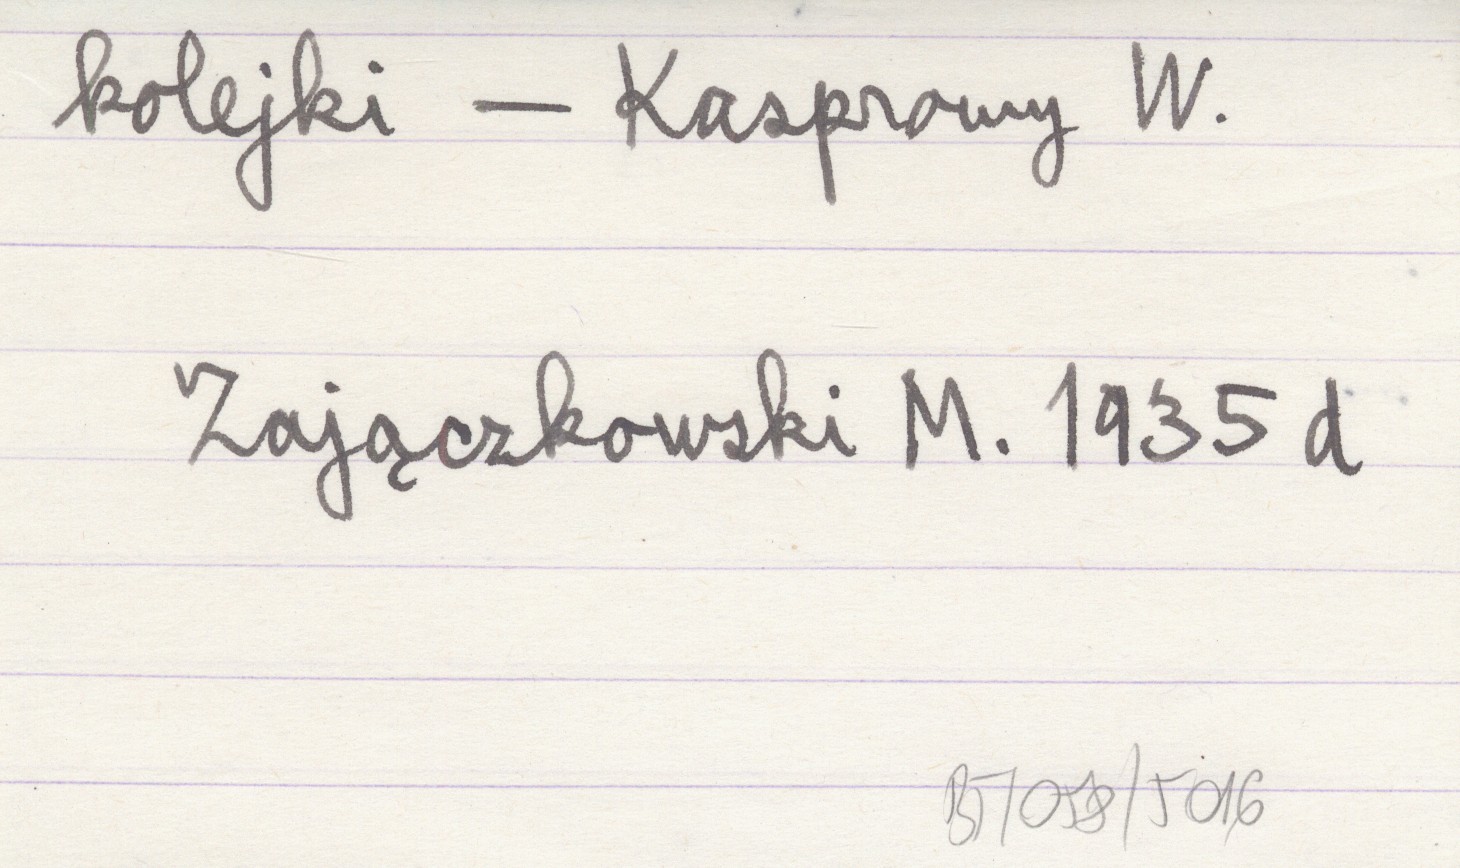 kolejki — Kasprowy W.
Zajączkowski M. 1935 d
B5/058/5016